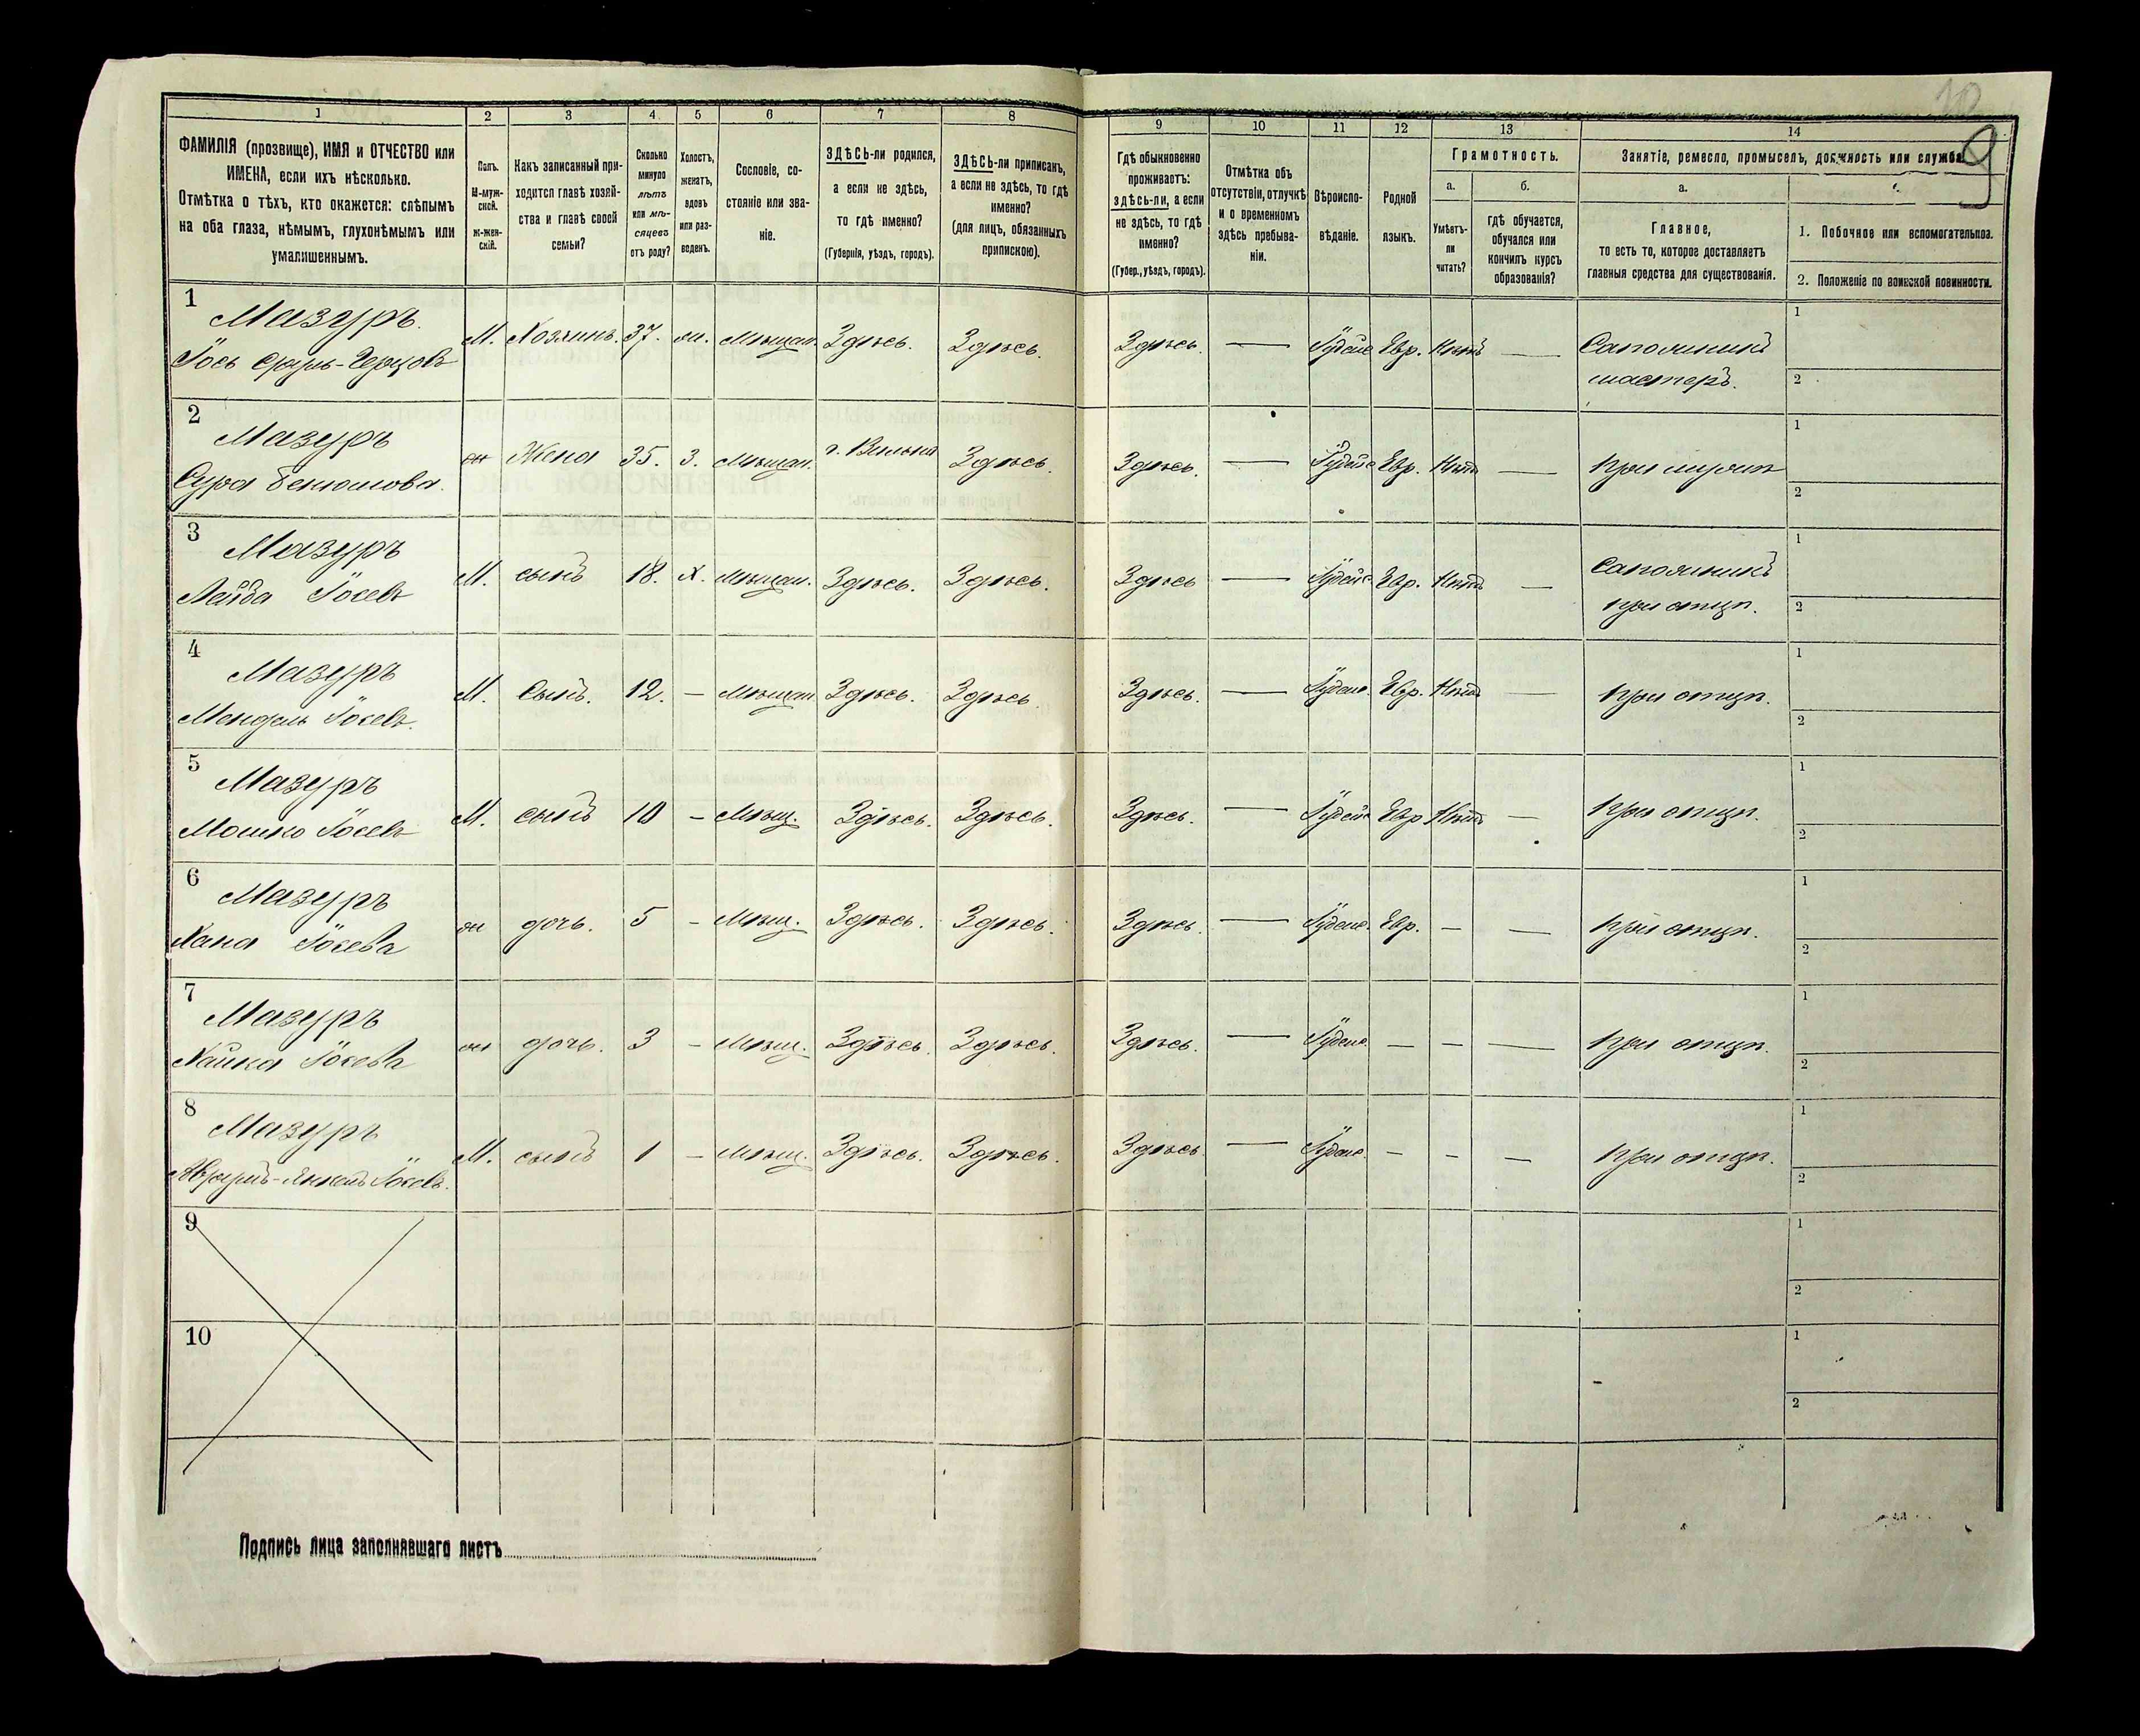 10
9
1 2 3 4 5 6 7 8 9 10 11 12 13 14
ФАМИЛІЯ (прозвище), ИМЯ и ОТЧЕСТВО или
ИМЕНА, если ихъ нѣсколько.
Отмѣтка о тѣхъ, кто окажется: слѣпымъ
на оба глаза, нѣмымъ, глухонѣмымъ или
умалишеннымъ.
Полъ.
М-муж-
ской.
Ж-жен-
скій.
Какъ записанный при-
ходится главѣ хозяй-
ства и главѣ своей
семьи?
Сколько
минуло
лѣтъ
или мѣ-
сяцевъ
отъ роду?
Холостъ,
женатъ,
вдовъ
или раз-
веденъ.
Сословіе, со-
стояніе или зва-
ніе.
ЗДѢСЬ-ли родился,
а если не здѣсь,
то гдѣ именно?
(Губернія, уѣздъ, городъ).
ЗДѢСЬ-ли приписанъ,
а если не здѣсь, то гдѣ
именно?
(для лицъ, обязанныхъ
припискою).
Гдѣ обыкновенно
проживаетъ:
здѣсь-ли, а если
не здѣсь, то гдѣ
именно?
(Губер., уѣздъ, городъ).
Отмѣтка объ
отсутствіи, отлучкѣ
и о временномъ
здѣсь пребыва-
ніи.
Вѣроиспо-
вѣданіе.
Родной
языкъ.
Грамотность.
а.
Умѣетъ-
ли
читать?
б.
гдѣ обучается,
обучался или
кончилъ курсъ
образованія?
Занятіе, ремесло, промыселъ, должность или служба
а.
Главное,
то есть то, которое доставляетъ
главныя средства для существованія.
1. Побочное или вспомогательное.
2. Положеніе по воинской повинности.
1 Мазуръ.
М. Хозяинъ. 37. Мѣщан. Здѣсь. Здѣсь. Здѣсь. — Іудейс Евр. Нѣтъ — Сапожникъ
мастеръ.
1
2
2 Мазуръ
Сура
Жена 35. З. Мѣщан. г. Вильна Здѣсь. Здѣсь. — Іудейс Евр. Нѣтъ — при мужѣ
1
2
3 Мазуръ
Лейба Іосевъ
М. сынъ 18. Х. Мѣщан. Здѣсь. Здѣсь. Здѣсь — Іудейс Евр. Нѣтъ — Сапожникъ
при отцѣ.
1
2
4 Мазуръ
Мендель Іосевъ.
М. Сынъ. 12. — Мѣщан Здѣсь. Здѣсь Здѣсь. — Іудейс. Евр. Нѣтъ — при отцѣ.
1
2
5 Мазуръ
Мошко Іосевъ
М. сынъ 10 — Мѣщ. Здѣсь. Здѣсь. Здѣсь. — Іудейс Евр Нѣтъ — при отцѣ.
1
2
6 Мазуръ
Хана Іосева
ж дочь. 5 — Мѣщ. Здѣсь. Здѣсь. Здѣсь. — Іудейс. Евр. — — при отцѣ.
1
2
7 Мазуръ
Хайка Іосева
ж дочь. 3 — Мѣщ. Здѣсь. Здѣсь. Здѣсь. — Іудейс. — — — при отцѣ.
1
2
8 Мазуръ
Іосевъ.
М. сынъ 1 — Мѣщ. Здѣсь. Здѣсь. Здѣсь. — Іудейс. — — — при отцѣ.
1
2
9
1
2
10
1
2
Подпись лица заполнявшаго листъ